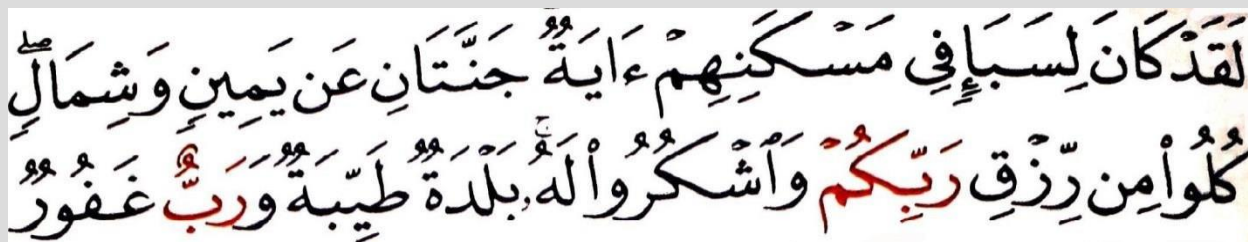 لَقَدْ كَانَ لِسَبَإٍ فِي مَسْكَنِهِمْ ءَايَةٌ جَنَّتَانِ عَن يَمِينٍ وَشِمَالٍ ۖ
كُلُوا۟ مِن رِّزْقِ رَبِّكُمْ وَٱشْكُرُوا۟ لَهُۥ ۚ بَلْدَةٌ طَيِّبَةٌ وَرَبٌّ غَفُورٌ